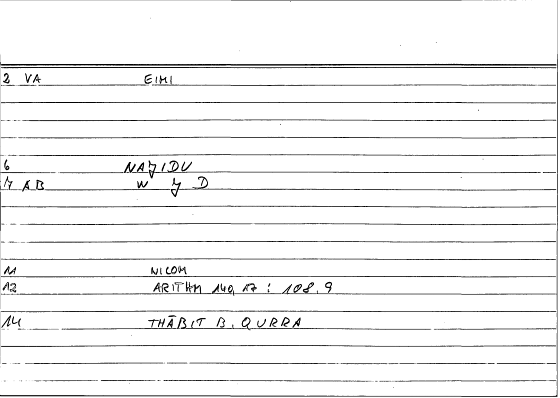 2 VA EIMI
6 NAJIDU
7 AB W J D
11 NICOM
12 ARITHM 140, 17 : 108, 9
14 THĀBIT B. QURRA